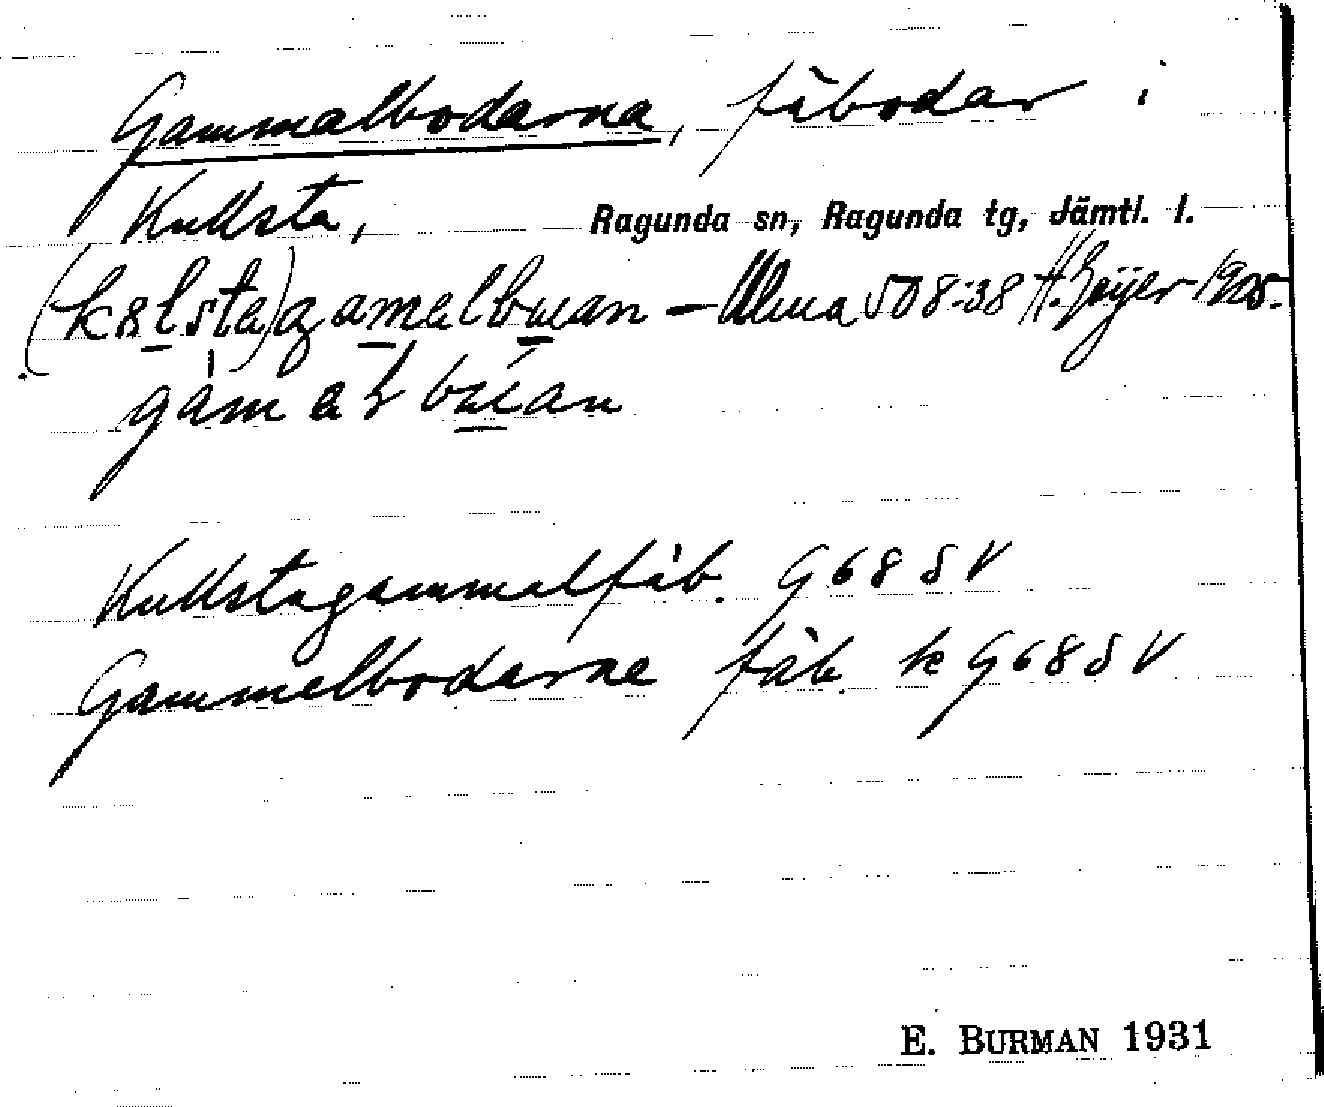 Gammalbodarna, fäbodar i
Kullsta, Ragunda sn, Ragunda tg, Jämtl. l.
(kslsta) gamalbuan – Ulma 508:38 H. Geijer 1905.
gàm aḷ búan
Kullstagammalfäb. G 68 SV
Gammelbodarne fäb. k G 68 SV
E. BURMAN 1931